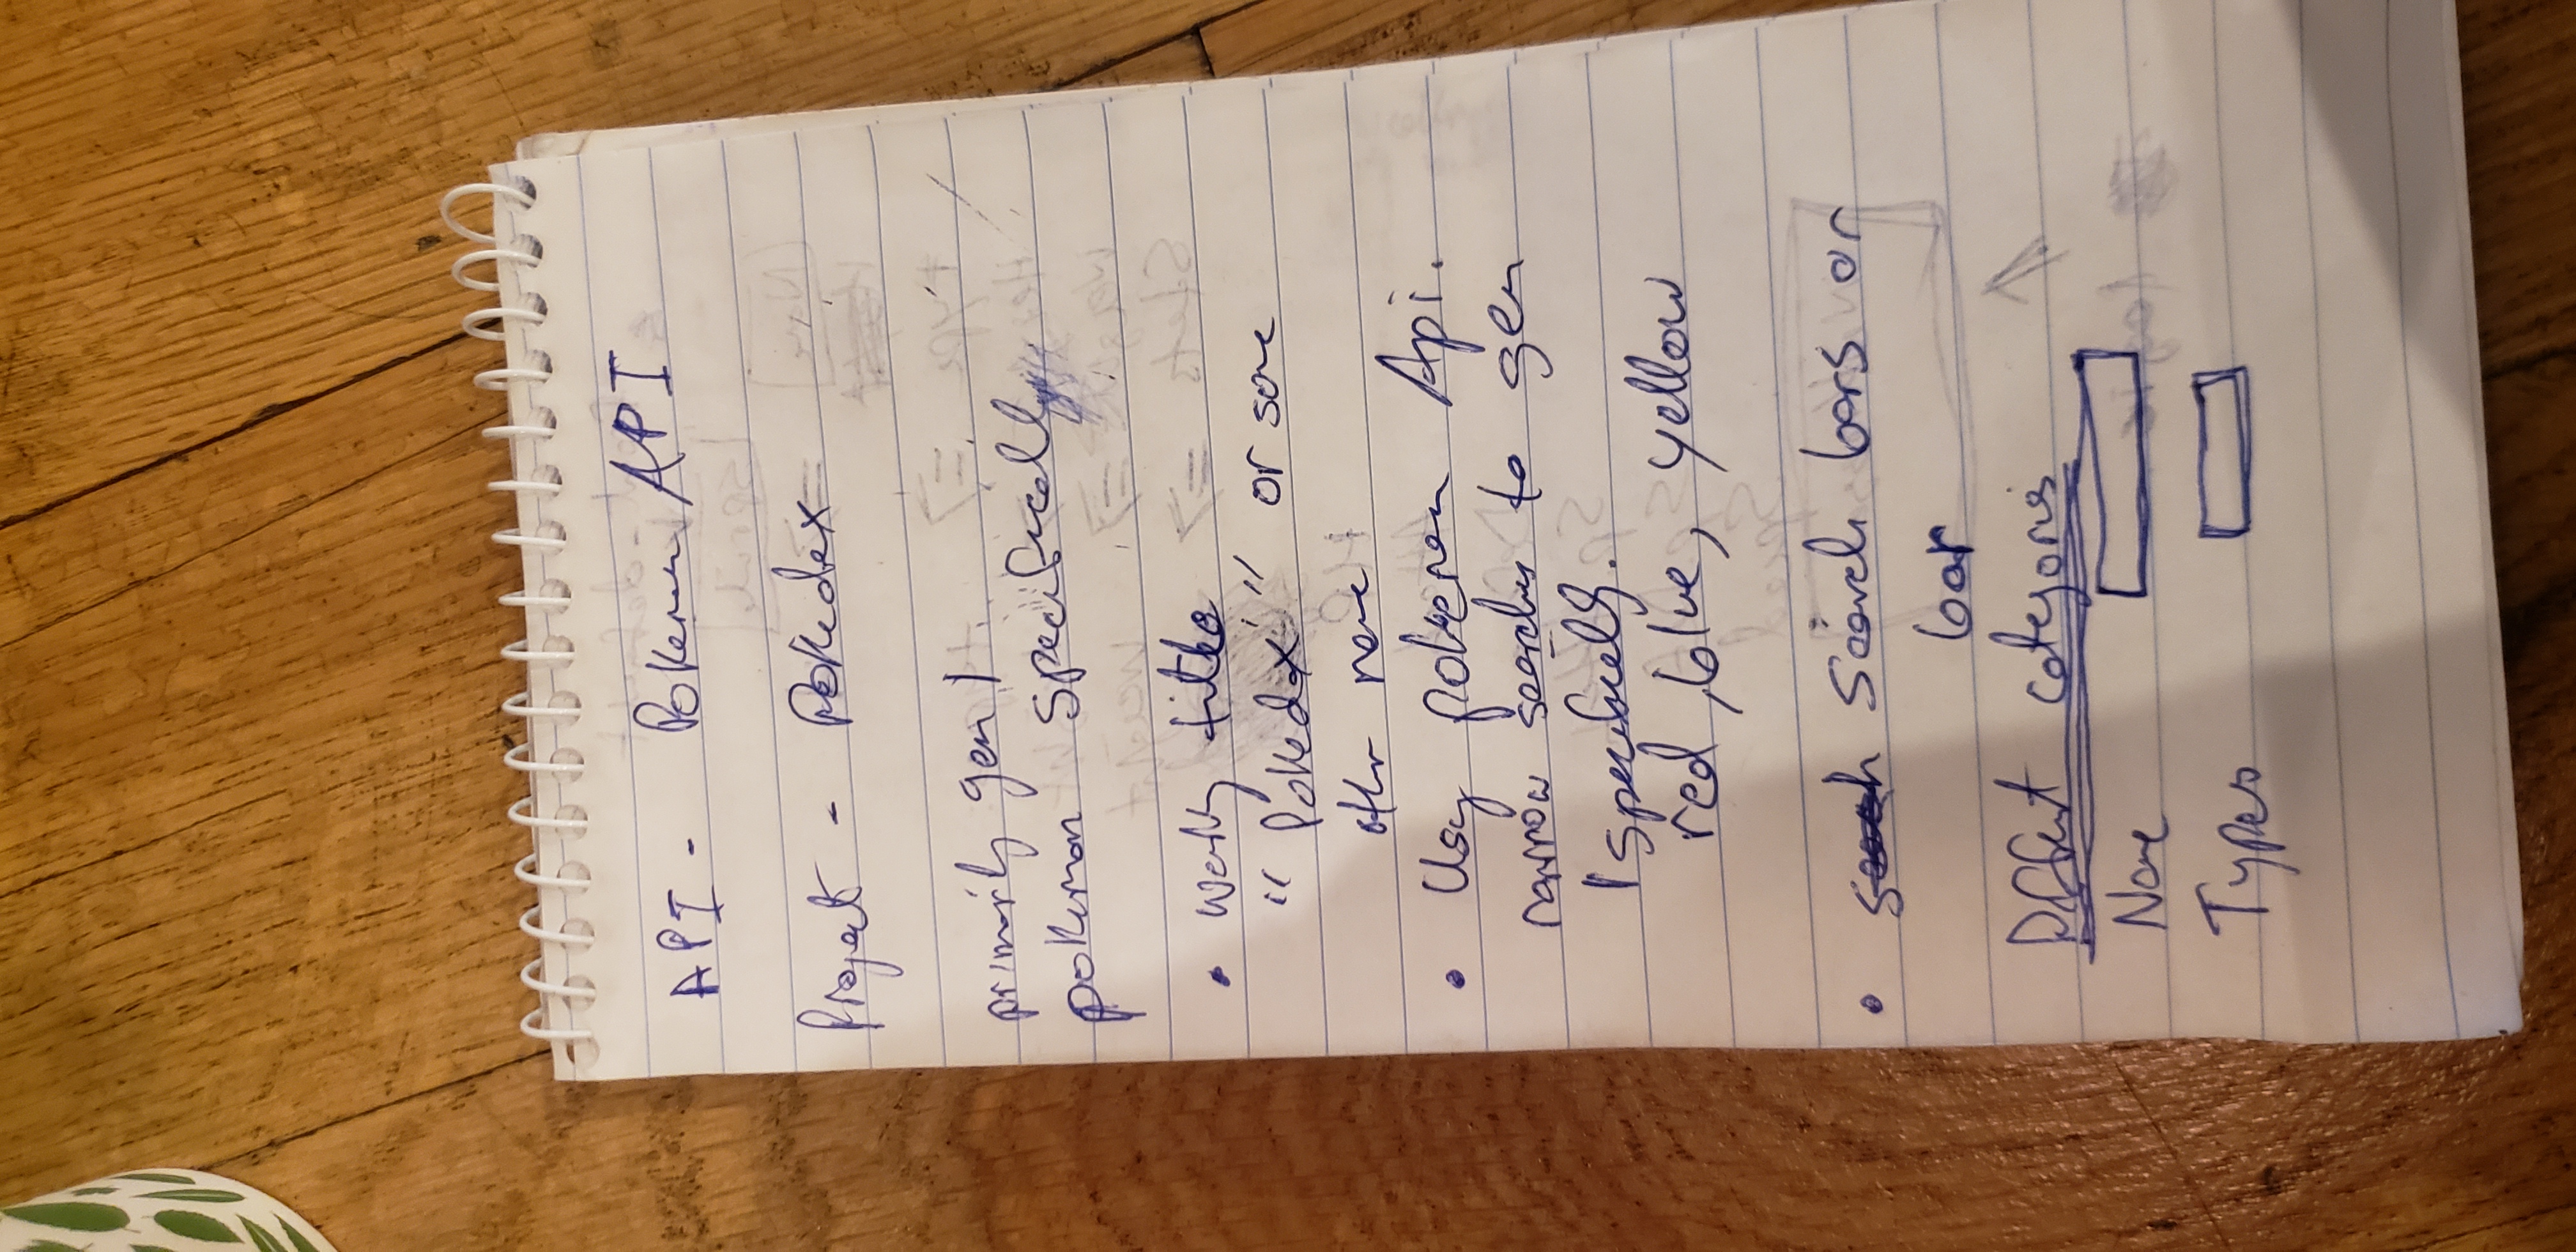 API - Pokemon API
Project - Pokedex
primarily gen 1
pokemon specifically
• Working title
" Pokedex " or some
other name
• Using pokemon Api.
narrow searches to gen
1 specifically.
red, blue, yellow
• Search bars or
bar
Different categories
Name
Types